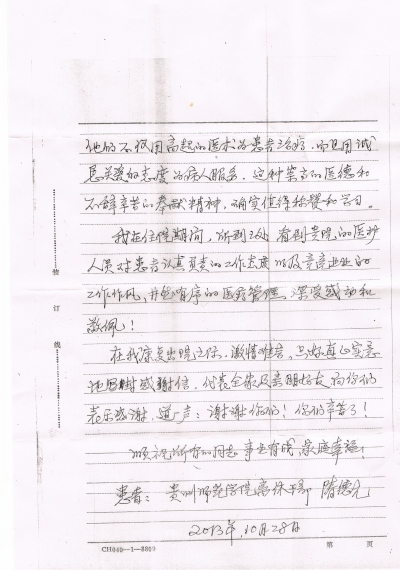 他们不仅用高超的医术为患者治疗，而且用诚
恳关爱的态度为病人服务。这种崇高的医德和
不辞辛苦的奉献精神，确实值得称赞和学习。
我在住院期间，所到之处看到贵院的医护
人员对患者认真负责的工作态度以及
工作作风，井然有序的医疗管理，深受感动和
敬佩！
在我康复出院之际，激情难言，只好真心实意
地写封感谢信，代表全家及亲朋好友向你们
表示感谢，道一声：谢谢你们！你们辛苦了！
顺祝所有的同志事业有成，家庭幸福！
患者：贵州师范学院离休干部
2013年10月28日
装
订
线
CH040—1—8809
第 页